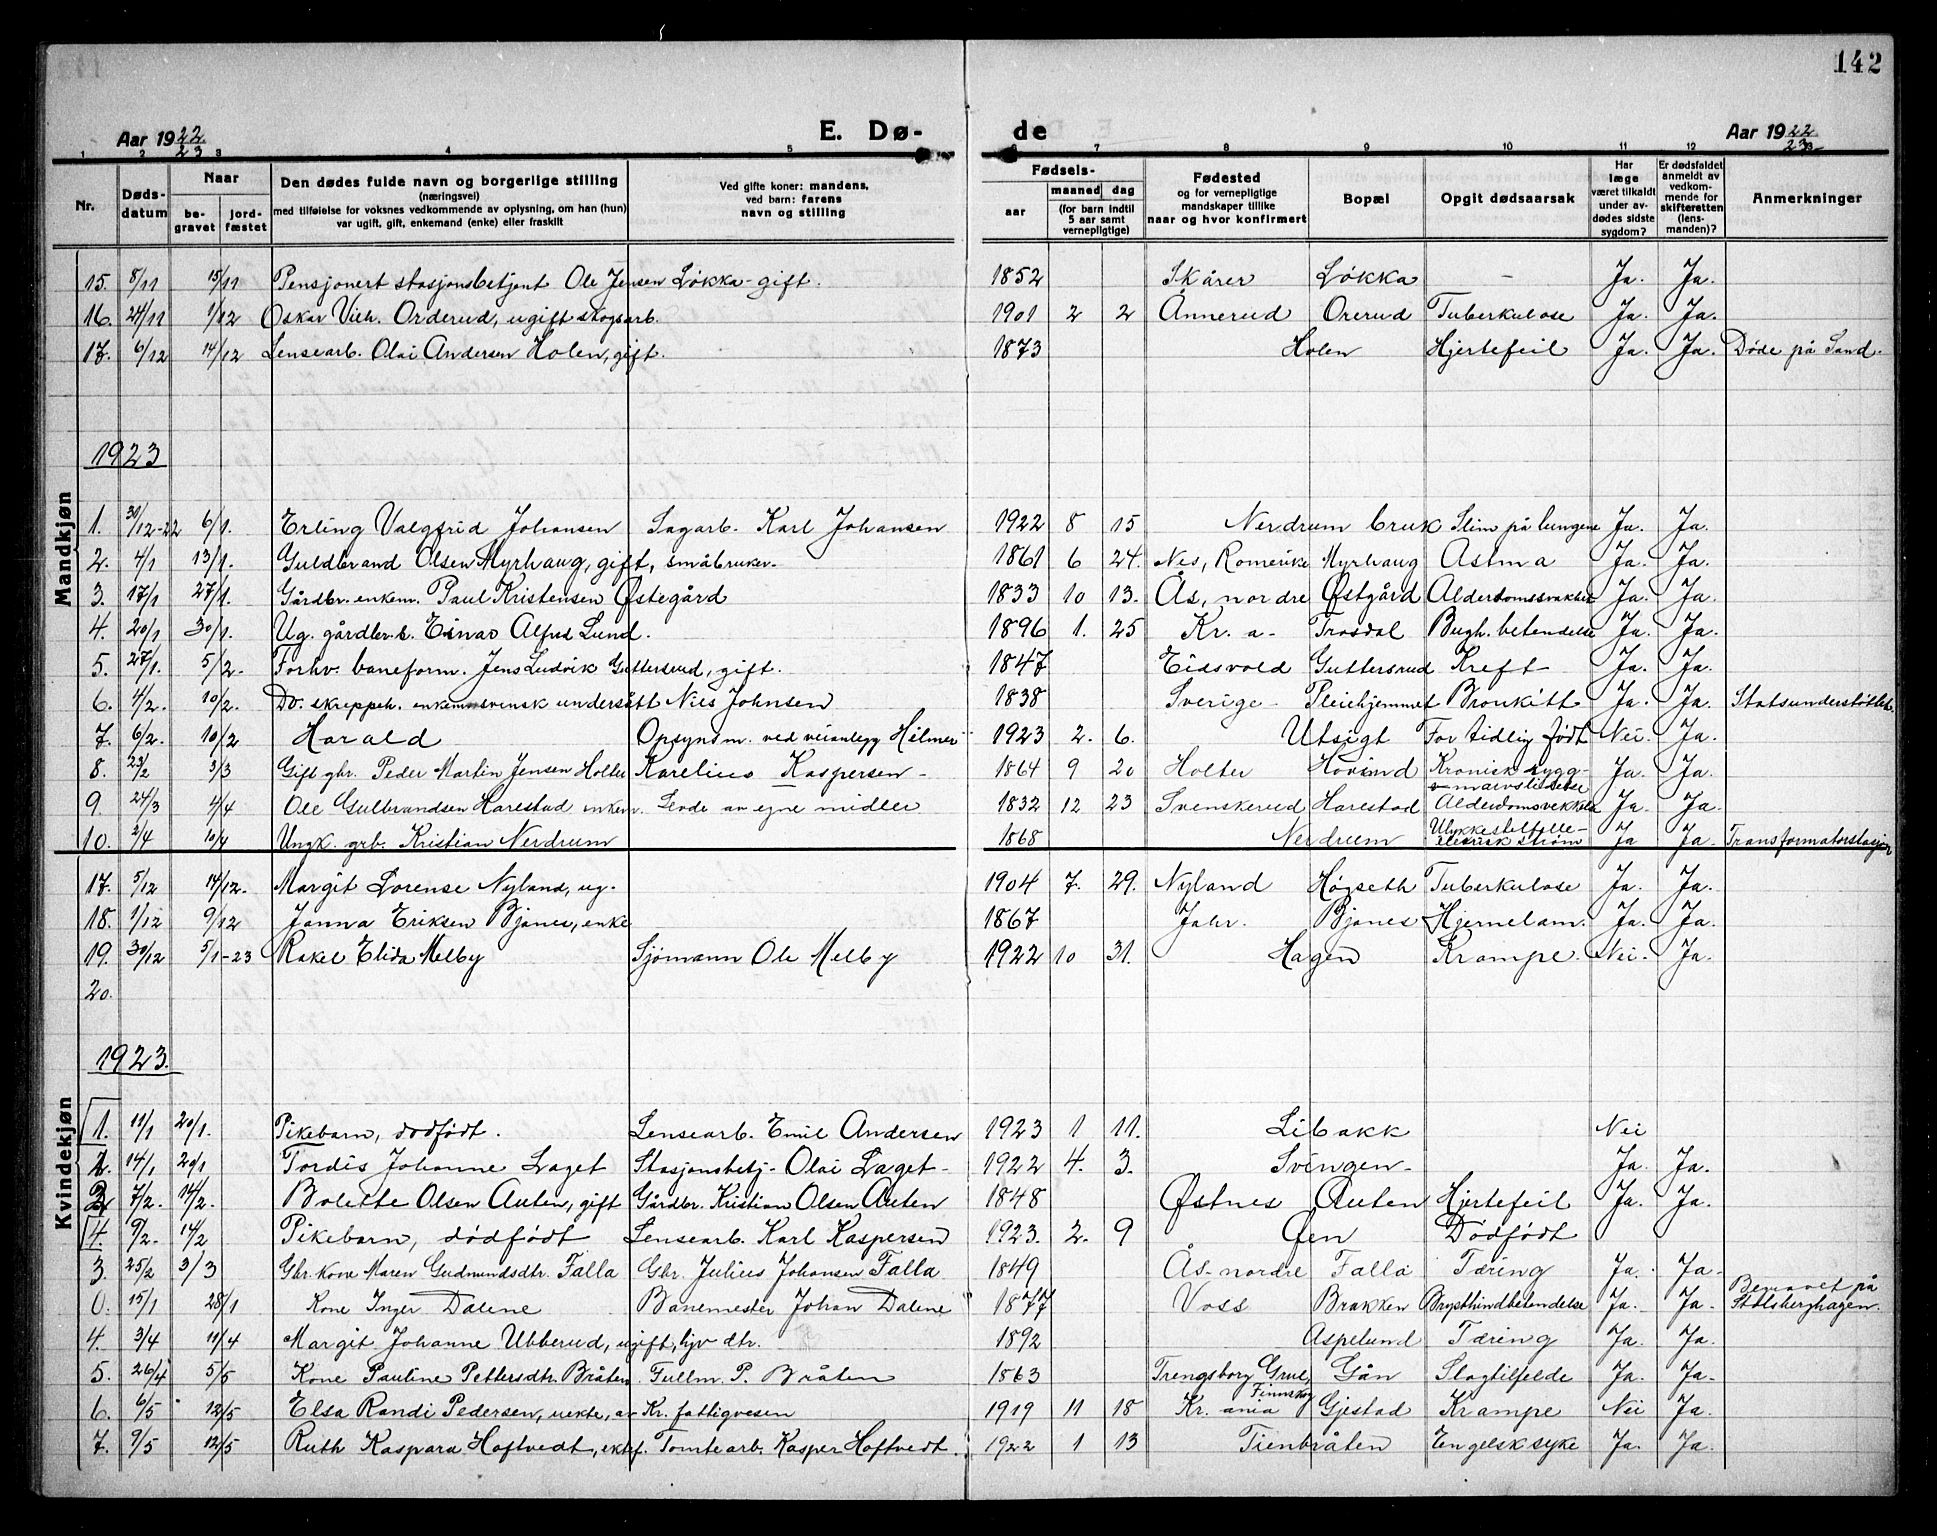 142
Aar 1922/23 E. Dø- de Aar 1922/23
1 2 3 4 5 6 7 8 9 10 11 12 13
Nr. Døds-datum Naar be-gravet jord-fæstet Den dødes fulde navn og borgerlige stilling (næringsvei) med tilføielse for voksnes vedkommende av oplysning, om han (hun) var ugift, gift, enkemand (enke) eller fraskilt Ved gifte koner: mandens, ved barn: farens navn og stilling Fødsels- aar maaned dag (for barn indtil 5 aar samt vernepligtige) Fødested og for vernepligtige mandskaper tillike naar og hvor konfirmert Bopæl Opgit dødsaarsak Har læge været tilkaldt under av-dødes sidste sygdom? Er dødsfaldet anmeldt av vedkom-mende for skifteretten (lens-manden)? Anmerkninger
Mandkjøn
15. 8/11 15/11 Pensjonert stasjonsbetjent Ole Jensen Løkka - gift. 1852 Skårer Løkka - Ja. Ja.
16. 24/11 1/12 Oskar Vilh. Orderud, ugift skogsarb. 1901 2 2 Ånnerud Orerud Tuberkulose Ja. Ja.
17. 6/12 14/12 Lensearb. Olai Andersen Holen, gift. 1873 Holen Hjertefeil Ja. Ja. Døde på Sand.
1923
1. 30/12-22 6/1. Erling Valgfrid Johansen Sagarb. Karl Johansen 1922 8 15 Nerdrum bruk Slim på lungene Ja. Ja.
2. 4/1 13/1. Guldbrand Olsen Myrhaug, gift, småbruker. 1861 6 24. Nes, Romerike Myrhaug Astma Ja. Ja.
3. 17/1 27/1. Gårdbr. enkem. Paul Kristensen Østegård 1833 10 13. Ås, nordre Østgård Alderdomssvakhet Ja. Ja.
4. 20/1 30/1. Ug. gårdbr. Einar Alfred Lund. 1896 1. 25 Kr.a- Trosdal Bugh. betendelse Ja. Ja.
5. 27/1. 5/2. Forhv. baneform. Jens Ludvik Guttersrud, gift. 1847 Eidsvold Guttersrud Kreft Ja. Ja.
6. 4/2. 10/2. Do. skreppeh. enkem. svensk undersått Nils Johnsen 1838 Sverige - Pleiehjemmet Bronkitt Ja. Ja. Statsunderstøttet.
7. 6/2. 10/2 Harald Opsynsm. ved veianlegg Hilmer 1923 2. 6. Utsigt For tidlig født Nei. Ja.
8. 23/2 3/3 Gift gbr. Peder Martin Jensen Holter Karelius Kaspersen - 1864 9 20 Holter Hovind Kronisk rygg-marvslidelse Ja. Ja.
9. 24/3 4/4 Ole Gulbrandsen Harestad enkem. Levde av egne midler 1832 12 23 Svenskerud Harestad Alderdomsvekkelse Ja. Ja.
10. 2/4 10/4 Ungk. grb. Kristian Nerdrum 1868 Nerdrum Ulykkestilfelle- elektrisk strøm Ja Ja. Transformatorstasjon
Kvindekjøn
17. 5/12 14/12. Margit Lorense Nyland, ug. 1904 7. 29. Nyland Høgseth Tuberkulose Ja. Ja.
18. 1/12 9/12 Janna Eriksen Bjønes, enke 1867 Jahr. Bjønes Hjernelam. Ja. Ja.
19. 30/12 5/1-23 Rakel Elida Melby Sjømann Ole Melby 1922 10 31. Hagen Krampe. Nei. Ja.
20.
1923.
1. 11/1 20/1. Pikebarn, dødfødt. Lensearb. Emil Andersen 1923 1 11. Libakk Nei
2. 14/1 20/1 Tordis Johanne Laget Stasjonsbetj- Olai Laget - 1922 4. 3. Svingen - Ja. Ja.
3 7/2. 14/2. Bolette Olsen Auten, gift Gårdbr. Kristian Olsen Auten 1848 Østnes Auten Hjertefeil Ja. Ja.
4. 9/2. 14/2 Pikebarn, dødfødt Lensearb. Karl Kaspersen 1923. 2. 9 Øen Dødfødt
3. 25/2 3/3 Gbr. kone Maren Gudmundsdtr. Falla Gbr. Julius Johansen Falla 1849 Ås-nordre Falla Tæring Ja. Ja.
0. 15/1 28/1 Kone Inger Dalene Banemester Johan Dalene 1877 Voss Brakken Brysthindbetendelse Ja. Ja. Begravet på Stalsberghagen.
4. 3/4 11/4 Margit Johanne Ubberud, ugift, hjv dtr. 1892 Aspelund Tæring Ja. Ja.
5. 26/4 5/5 Kone Pauline Pettersdtr. Bråten Fullm. P. Bråten 1863 Trengsborg Grue, Finnskog Gån Slagtilfelde Ja. Ja.
6. 6/5 12/5 Elsa Randi Pedersen, uekte, av Kr. fattigvesen 1919 11 18 Kr.ania Gjestad Krampe Nei Ja.
7. 9/5 12/5 Ruth Kaspara Hoftvedt, ektef. Tomtearb. Kasper Hoftvedt. 1922 1 13 Tienbråten Engelsk syke Ja. Ja.